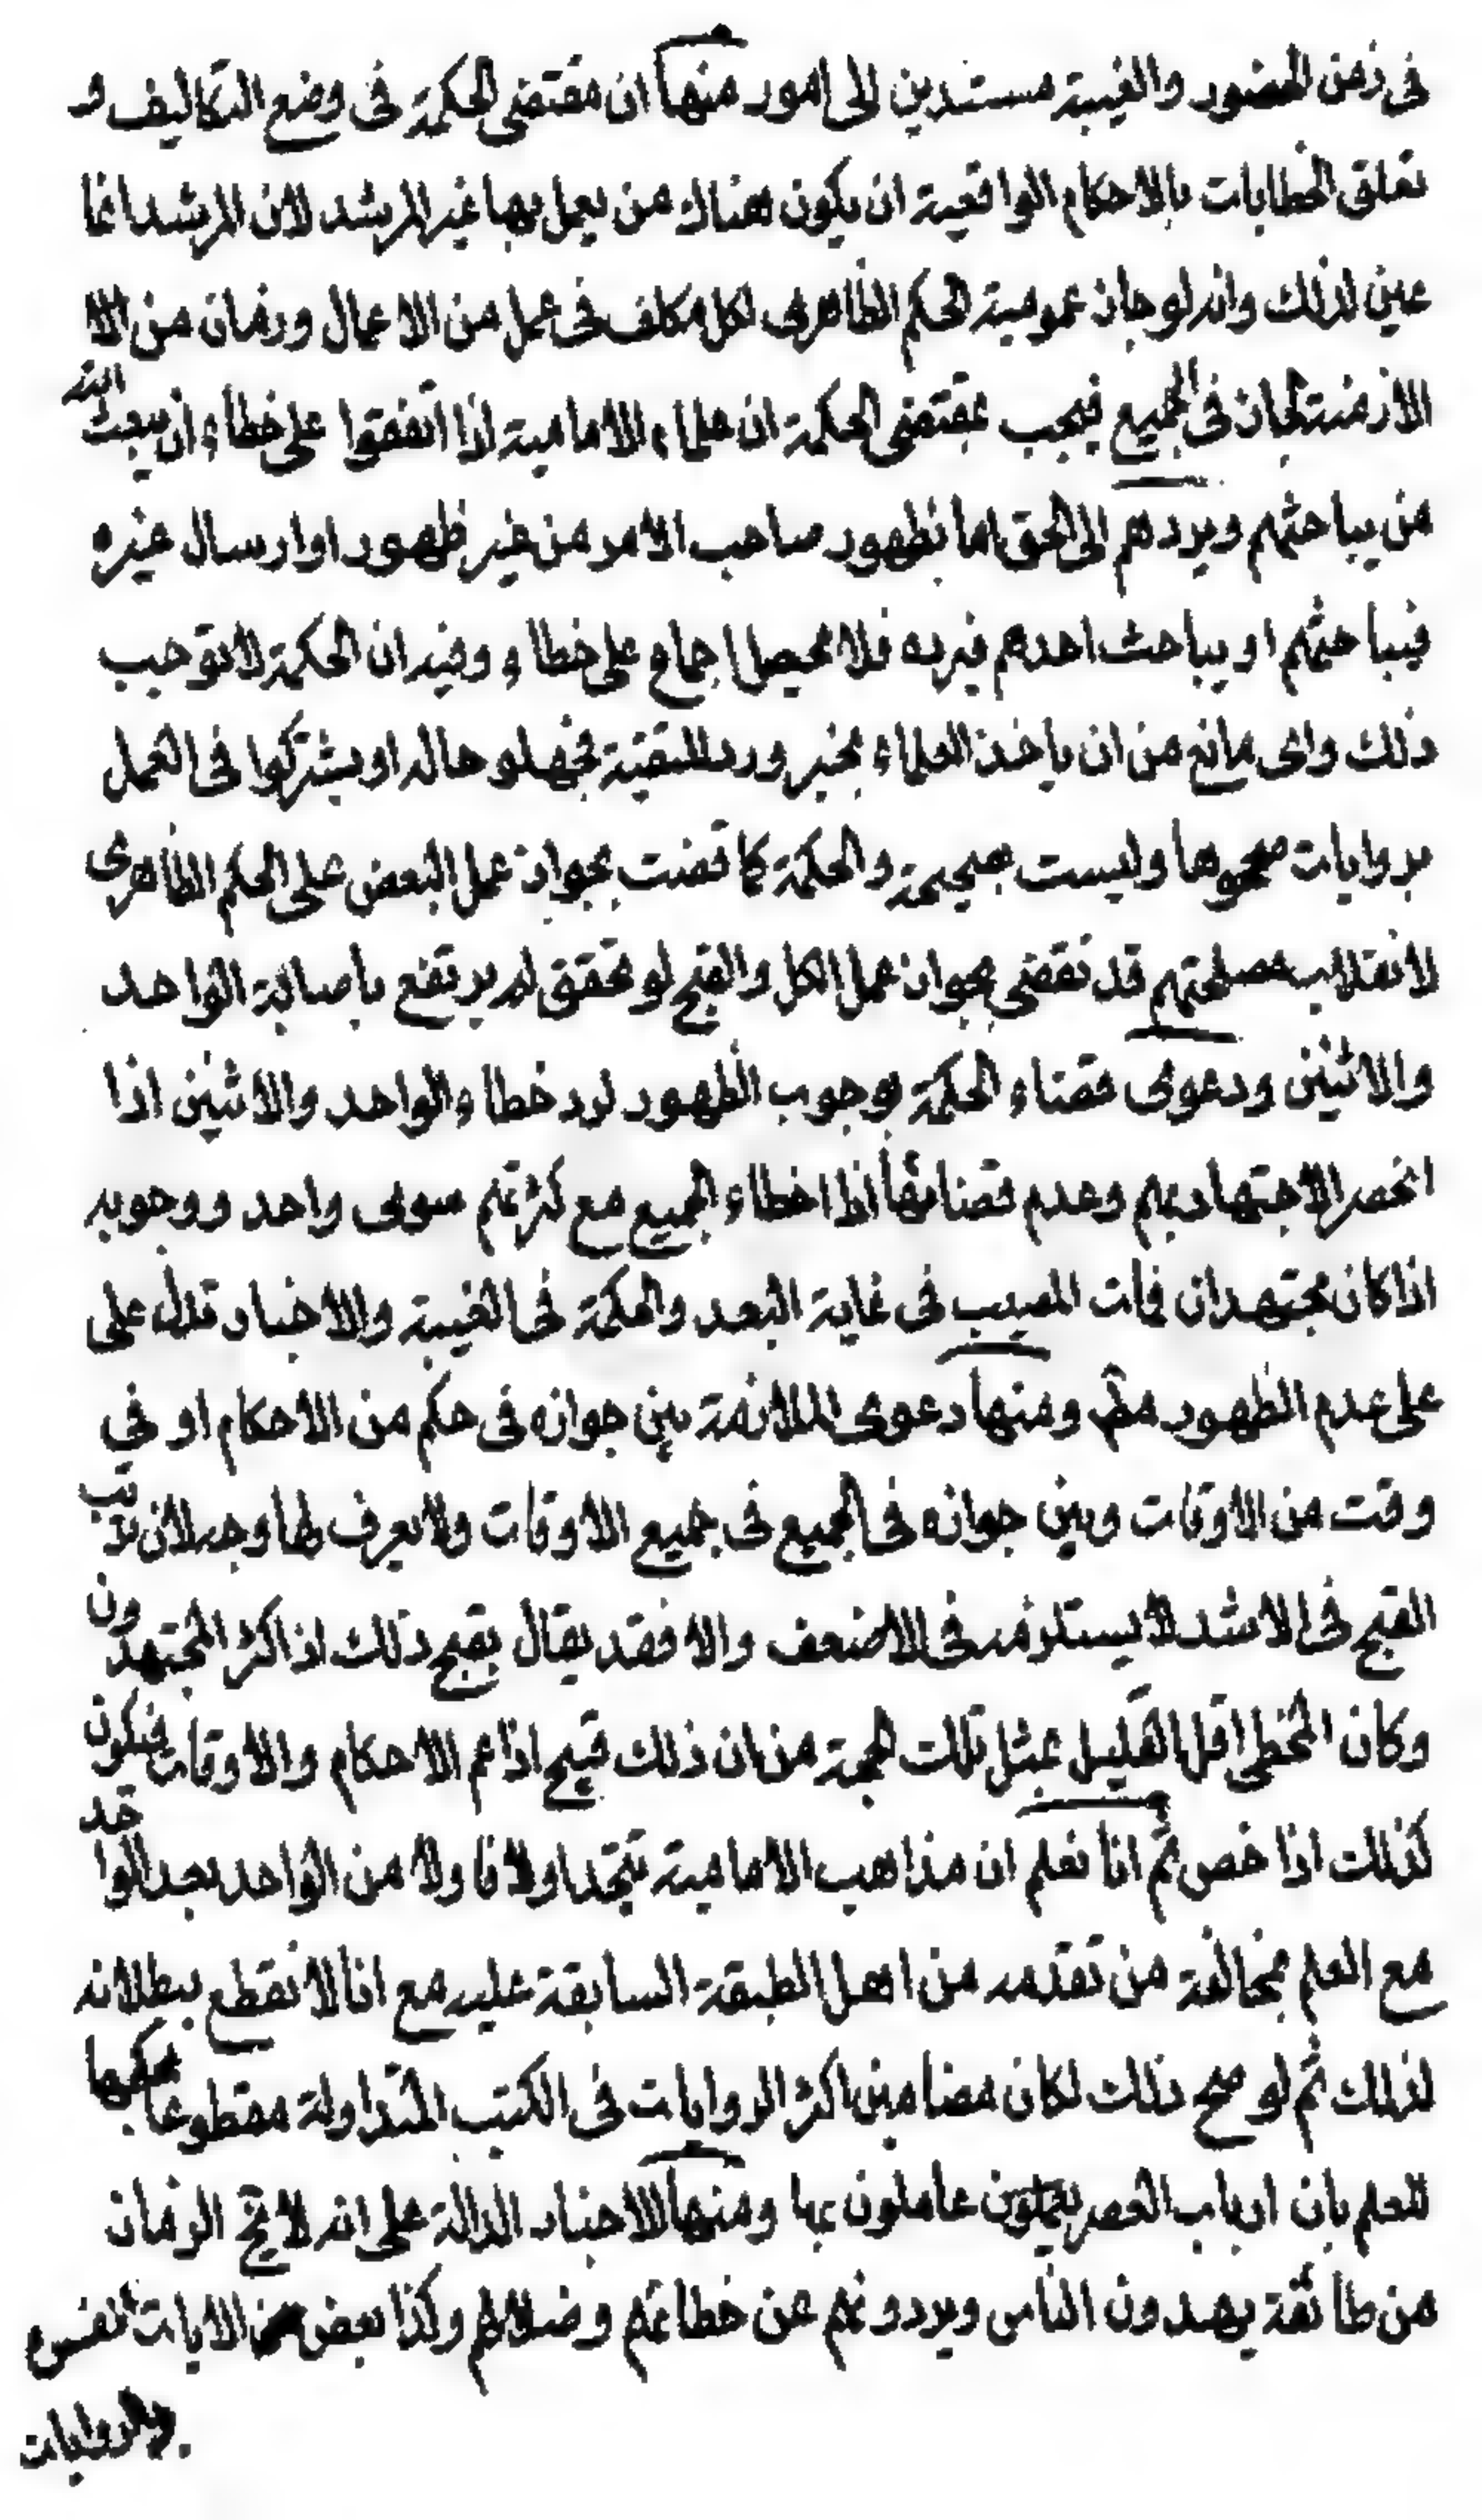 فى زمن الحضور والغيبة مستندين الى امور منها ان مقتضى الحكمة فى وضع التكاليف و
تعلق الخطابات بالاحكام الواقعية ان يكون هناك من يعمل بها غير المرشد لان المرشد انما
عين لذلك وانه لو جاز عمومية الحكم الظاهرى لكل مكلف فى عمل من الاعمال وزمان من الا
الازمنة لجاز فى الجميع فيجب بمقتضى الحكمة ان علماء الامامية اذا اتفقوا على خطاء ان يبعث الله
من يباحثهم ويردهم الى الحق اما بظهور صاحب الامر من غير ظهور او ارسال غيره
فيباحثهم او يباحث احدهم فيرده فلا يحصل اجماع على خطاء وفيه ان الحكمة لا توجب
ذلك واى مانع من ان ياخذ العلماء بخبر ورد للتقية فجهلو حاله او يشتركوا فى العمل
بروايات صححوها وليست بصحيحة والحكمة كما قضت بجواز عمل البعض على الحكم الظاهرى
لانقلاب مصلحتهم قد تقضى بجواز عمل الكل والقبح لو تحقق لم يرتفع باصابة الواحد
والاثنين ودعوى قضاء الحكمة بوجوب الظهور لرد خطاء الواحد والاثنين اذا
انحصر الاجتهاد بهم وعدم قضائها اذا اخطاء الجميع مع كثرتهم سوى واحد ووجوبه
اذا كان مجتهدان فمات المصيب فى غاية البعد والحكمة فى الغيبة والاخبار تدل على
على عدم الظهور مطم ومنها دعوى الملازمة بين جوازه فى حكم من الاحكام او في
وقت من الاوقات وبين جوازه فى الجميع فى جميع الاوقات ولا يعرف لها وجه لان ترتب
القبح فى الاشد لا يستلزمه فى الاضعف والا فقد يقال بقبح ذلك اذا كثر المجتهدون
وكان المخطى اقل القليل بمثل تلك الحجة من ان ذلك قبيح اذا عم الاحكام والاوقات فيكون
كذلك اذا خص ثم انا نعلم ان مذاهب الامامية تتجدد اولا فاولا من الواحد بعد الواحد
مع العلم بمخالفة من تقدمه من اهل الطبقة السابقة عليه مع انا لا نقطع ببطلانه
لذلك ثم لو صح ذلك لكان مضامين اكثر الروايات فى الكتب المتداولة مقطوعا بحكمها
للعلم بان ارباب العصر عاملون بها ومنها الاخبار الدالة على انه لا يخ الزمان
من طائفة يهدون الناس ويردونهم عن خطائهم وضلالهم وكذا بعض الايات المفسرة
والروايات